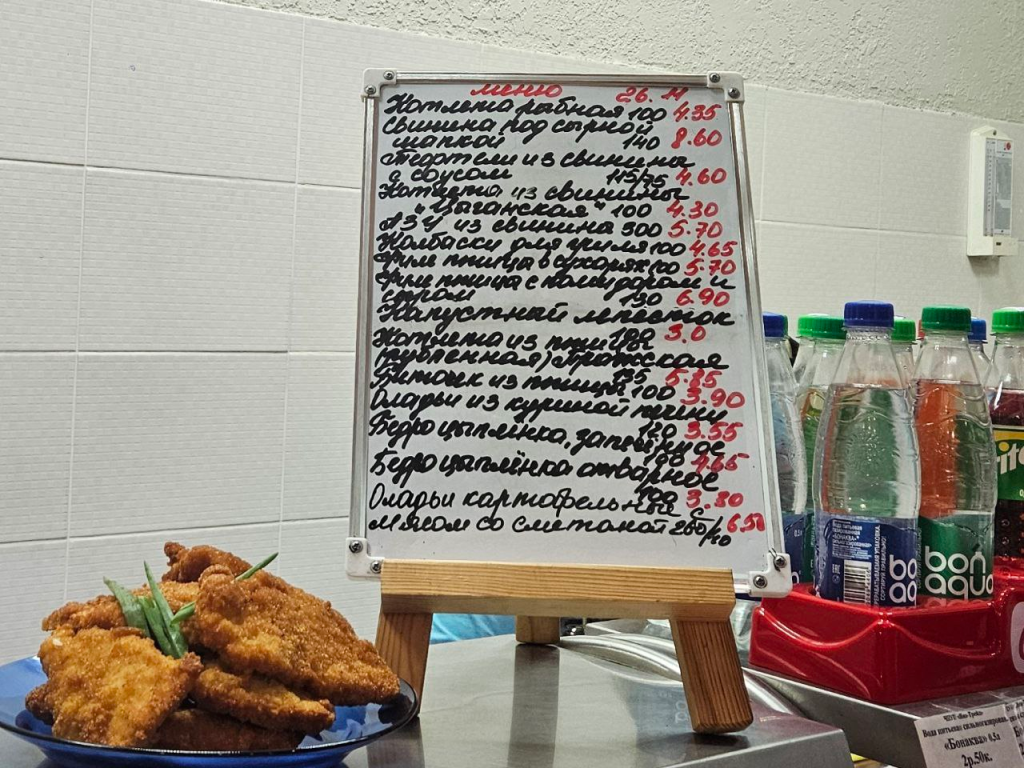 меню 26.11
Котлета рыбная 100 4.35
Свинина под сырной
шапкой 140 8.60
Тефтели из свинины
с соусом 115/75 4.60
Котлета из свинины
"Цыганская" 100 4.30
АЗУ из свинины 300 5.70
Колбаски для гриля 100 4.65
Филе птицы в сухарях 100 5.70
Филе птицы с помидором и
сыром 130 6.90
Капустный лепесток
100 3.0
Котлета из птицы
(рубленная) Пражская
5.85
Биточек из птицы 100 3.90
Оладьи из куриной печени
3.55
Бедро цыплёнка, запечённое
100 4.65
Бедро цыплёнка отварное
100 3.80
Оладьи картофельные с
мясом со сметаной 200/10 6.50
bon
aqua
bo
aq
«БОНАКВА»
Вода питьевая сильногазированная
«Бонаква» 0,5л
2р.50к.